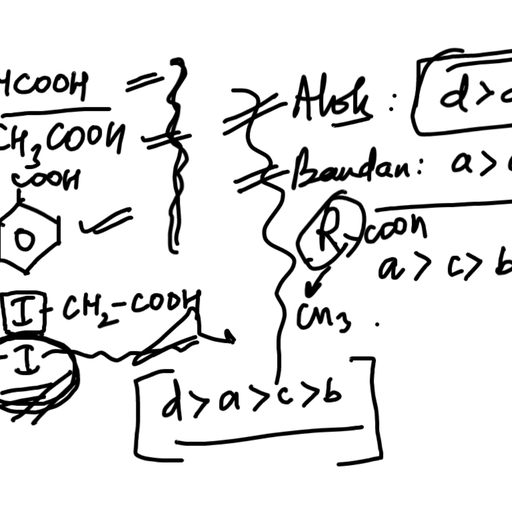 HCOOH
CH3COOH
COOH
I-CH2-COOH
I
Alok : d>
Bandan: a>
R-COOH
a>c>b
CH3
d>a>c>b